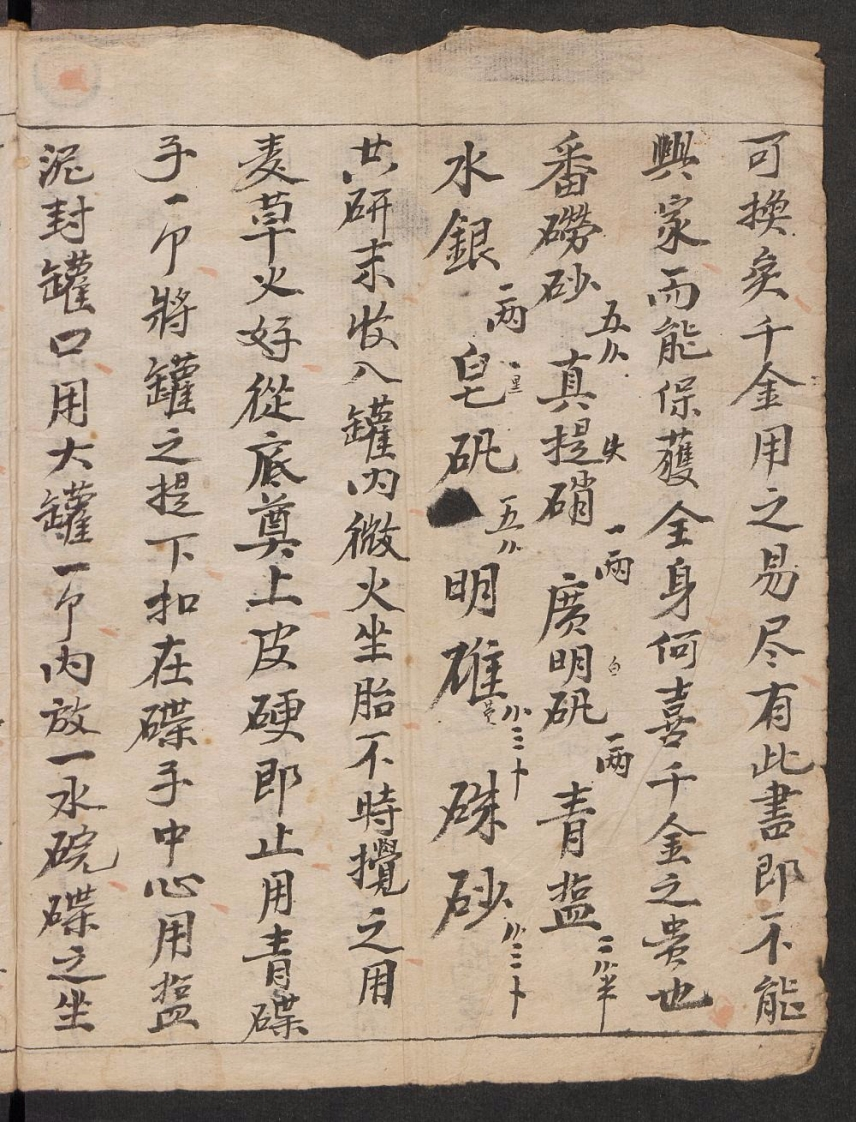 可換矣千金用之易尽有此書即不能
興家而能保獲全身何喜千金之貴也
番磱砂 五 真提硝 一兩 廣明矾 一兩 青盐 二半
水銀 一兩 皂矾 五 明碓 三 硃砂 三
共研末收入罐内微火坐胎不時攪之用
麦草火好從底奠上皮硬即止用青碟
子一个將罐之提下扣在碟子中心用盐
泥封罐口用大罐一个内放一水碗碟之坐